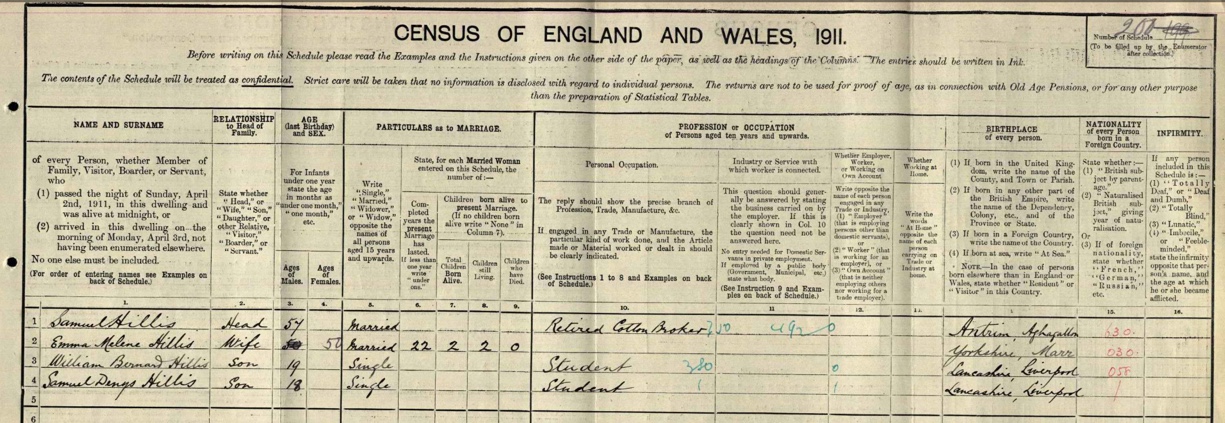 CENSUS OF ENGLAND AND WALES, 1911.
Number of Schedule
(To be filled up by the Enumerator
after collection.)
Before writing on this Schedule please read the Examples and the Instructions given on the other side of the paper, as well as the headings of the Columns. The entries should be written in Ink.
The contents of the Schedule will be treated as confidential. Strict care will be taken that no information is disclosed with regard to individual persons. The returns are not to be used for proof of age, as in connection with Old Age Pensions, or for any other purpose
than the preparation of Statistical Tables.
NAME AND SURNAME
of every Person, whether Member of
Family, Visitor, Boarder, or Servant,
who
(1) passed the night of Sunday, April
2nd, 1911, in this dwelling and
was alive at midnight, or
(2) arrived in this dwelling on the
morning of Monday, April 3rd, not
having been enumerated elsewhere.
No one else must be included.
(For order of entering names see Examples on
back of Schedule.)
RELATIONSHIP
to Head of
Family.
State whether
"Head," or
"Wife," "Son,"
"Daughter," or
other Relative,
"Visitor,"
"Boarder," or
"Servant."
AGE
(last Birthday)
and SEX.
For Infants
under one year
state the age
in months as
"under one month,"
"one month,"
etc.
Ages
of
Males.
Ages
of
Females.
PARTICULARS as to MARRIAGE.
Write
"Single,"
"Married,"
"Widower,"
or "Widow,"
opposite the
names of
all persons
aged 15 years
and upwards.
State, for each Married Woman
entered on this Schedule, the
number of :—
Completed
years the
present
Marriage
has
lasted.
If less than
one year
write
"under
one."
Children born alive to
present Marriage.
(If no children born
alive write "None" in
Column 7).
Total
Children
Born
Alive.
Children
still
Living.
Children
who
have
Died.
PROFESSION or OCCUPATION
of Persons aged ten years and upwards.
Personal Occupation.
The reply should show the precise branch of
Profession, Trade, Manufacture, &c.
If engaged in any Trade or Manufacture, the
particular kind of work done, and the Article
made or Material worked or dealt in should
be clearly indicated.
(See Instructions 1 to 8 and Examples on back
of Schedule.)
Industry or Service with
which worker is connected.
This question should generally
be answered by stating
the business carried on by
the employer. If this is
clearly shown in Col. 10
the question need not be
answered here.
No entry needed for Domestic Servants
in private employment.
If employed by a public body
(Government, Municipal, etc.)
state what body.
(See Instruction 9 and Examples
on back of Schedule.)
Whether Employer,
Worker, or
Working on Own
Account
Write opposite the
name of each
person engaged in
any Trade or
Industry,
(1) "Employer"
(that is employing
persons other than
domestic servants),
or
(2) "Worker" (that is
working for an
employer), or
(3) "Own Account"
(that is neither
employing others
nor working for a
trade employer).
Whether
Working at
Home.
Write the
words
"At Home"
opposite the
name of each
person
carrying on
Trade or
Industry at
home.
BIRTHPLACE
of every person.
(1) If born in the United Kingdom,
write the name of the
County, and Town or Parish.
(2) If born in any other part of
the British Empire, write
the name of the Dependency,
Colony, etc., and of the
Province or State.
(3) If born in a Foreign Country,
write the name of the Country.
(4) If born at sea, write "At Sea."
NOTE.—In the case of persons
born elsewhere than in England or
Wales, state whether "Resident" or
"Visitor" in this Country.
NATIONALITY
of every Person
born in a
Foreign Country.
State whether :—
(1) "British subject
by parentage,"
(2) "Naturalised
British subject,"
giving
year of naturalisation.
Or
(3) If of foreign
nationality,
state whether
"French,"
"German,"
"Russian,"
etc.
INFIRMITY.
If any person
included in this
Schedule is :—
(1) "Totally
Deaf," or "Deaf
and Dumb,"
(2) "Totally
Blind,"
(3) "Lunatic,"
(4) "Imbecile,"
or "Feeble-minded,"
state the infirmity
opposite that person's
name, and
the age at which
he or she became
afflicted.
1. 2. 3. 4. 5. 6. 7. 8. 9. 10. 11. 12. 15. 16.
1 Samuel Hillis Head 57 Married Retired Cotton Broker 0 Antrim, Aghagallon 630
2 Emma Melene Hillis Wife 50 Married 22 2 2 0 Yorkshire, Marr 030
3 William Bernard Hillis Son 19 Single Student 380 0 Lancashire, Liverpool
4 Samuel Denys Hillis Son 18 Single Student Lancashire, Liverpool
5
6